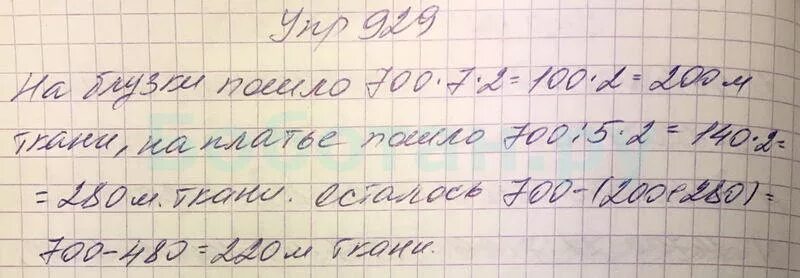 Упр 929
На блузки пошло 700·7·2=100·2=200м
ткани, на платье пошло 700:5·2=140·2=
=280м. ткани. осталось 700-(200+280)=
700-480=220м ткани.
Боботан.ру